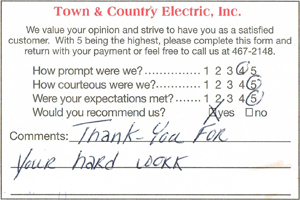 Town & Country Electric, Inc.
We value your opinion and strive to have you as a satisfied
customer. With 5 being the highest, please complete this form and
return with your payment or feel free to call us at 467-2148.
How prompt were we?.............. 1 2 3 4 5
How courteous were we?.......... 1 2 3 4 5
Were your expectations met?....... 1 2 3 4 5
Would you recommend us? ☒yes ☐no
Comments: Thank-You For
your hard work